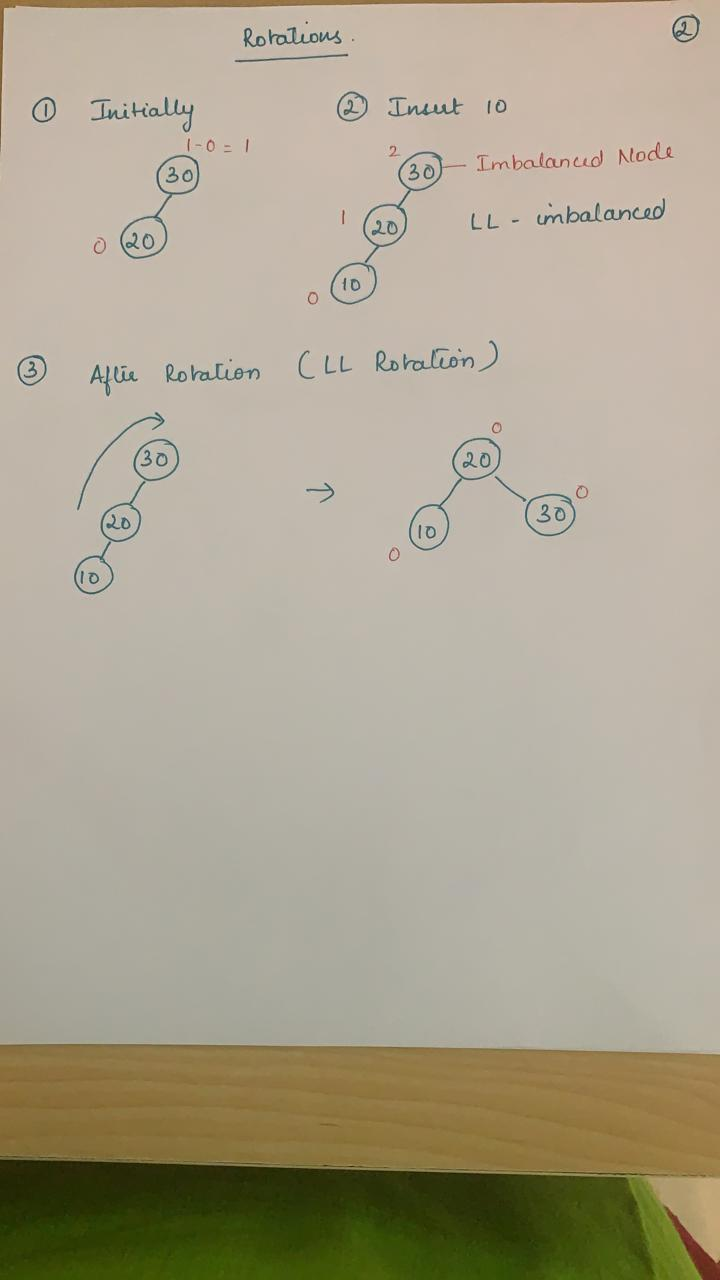 Rotations.
②
① Initially
1-0 = 1
30
0 20
② Insert 10
2 30 — Imbalanced Node
1 20 LL - imbalanced
0 10
③ After Rotation (LL Rotation)
30
20
10
→
0
20
10
30 0
0